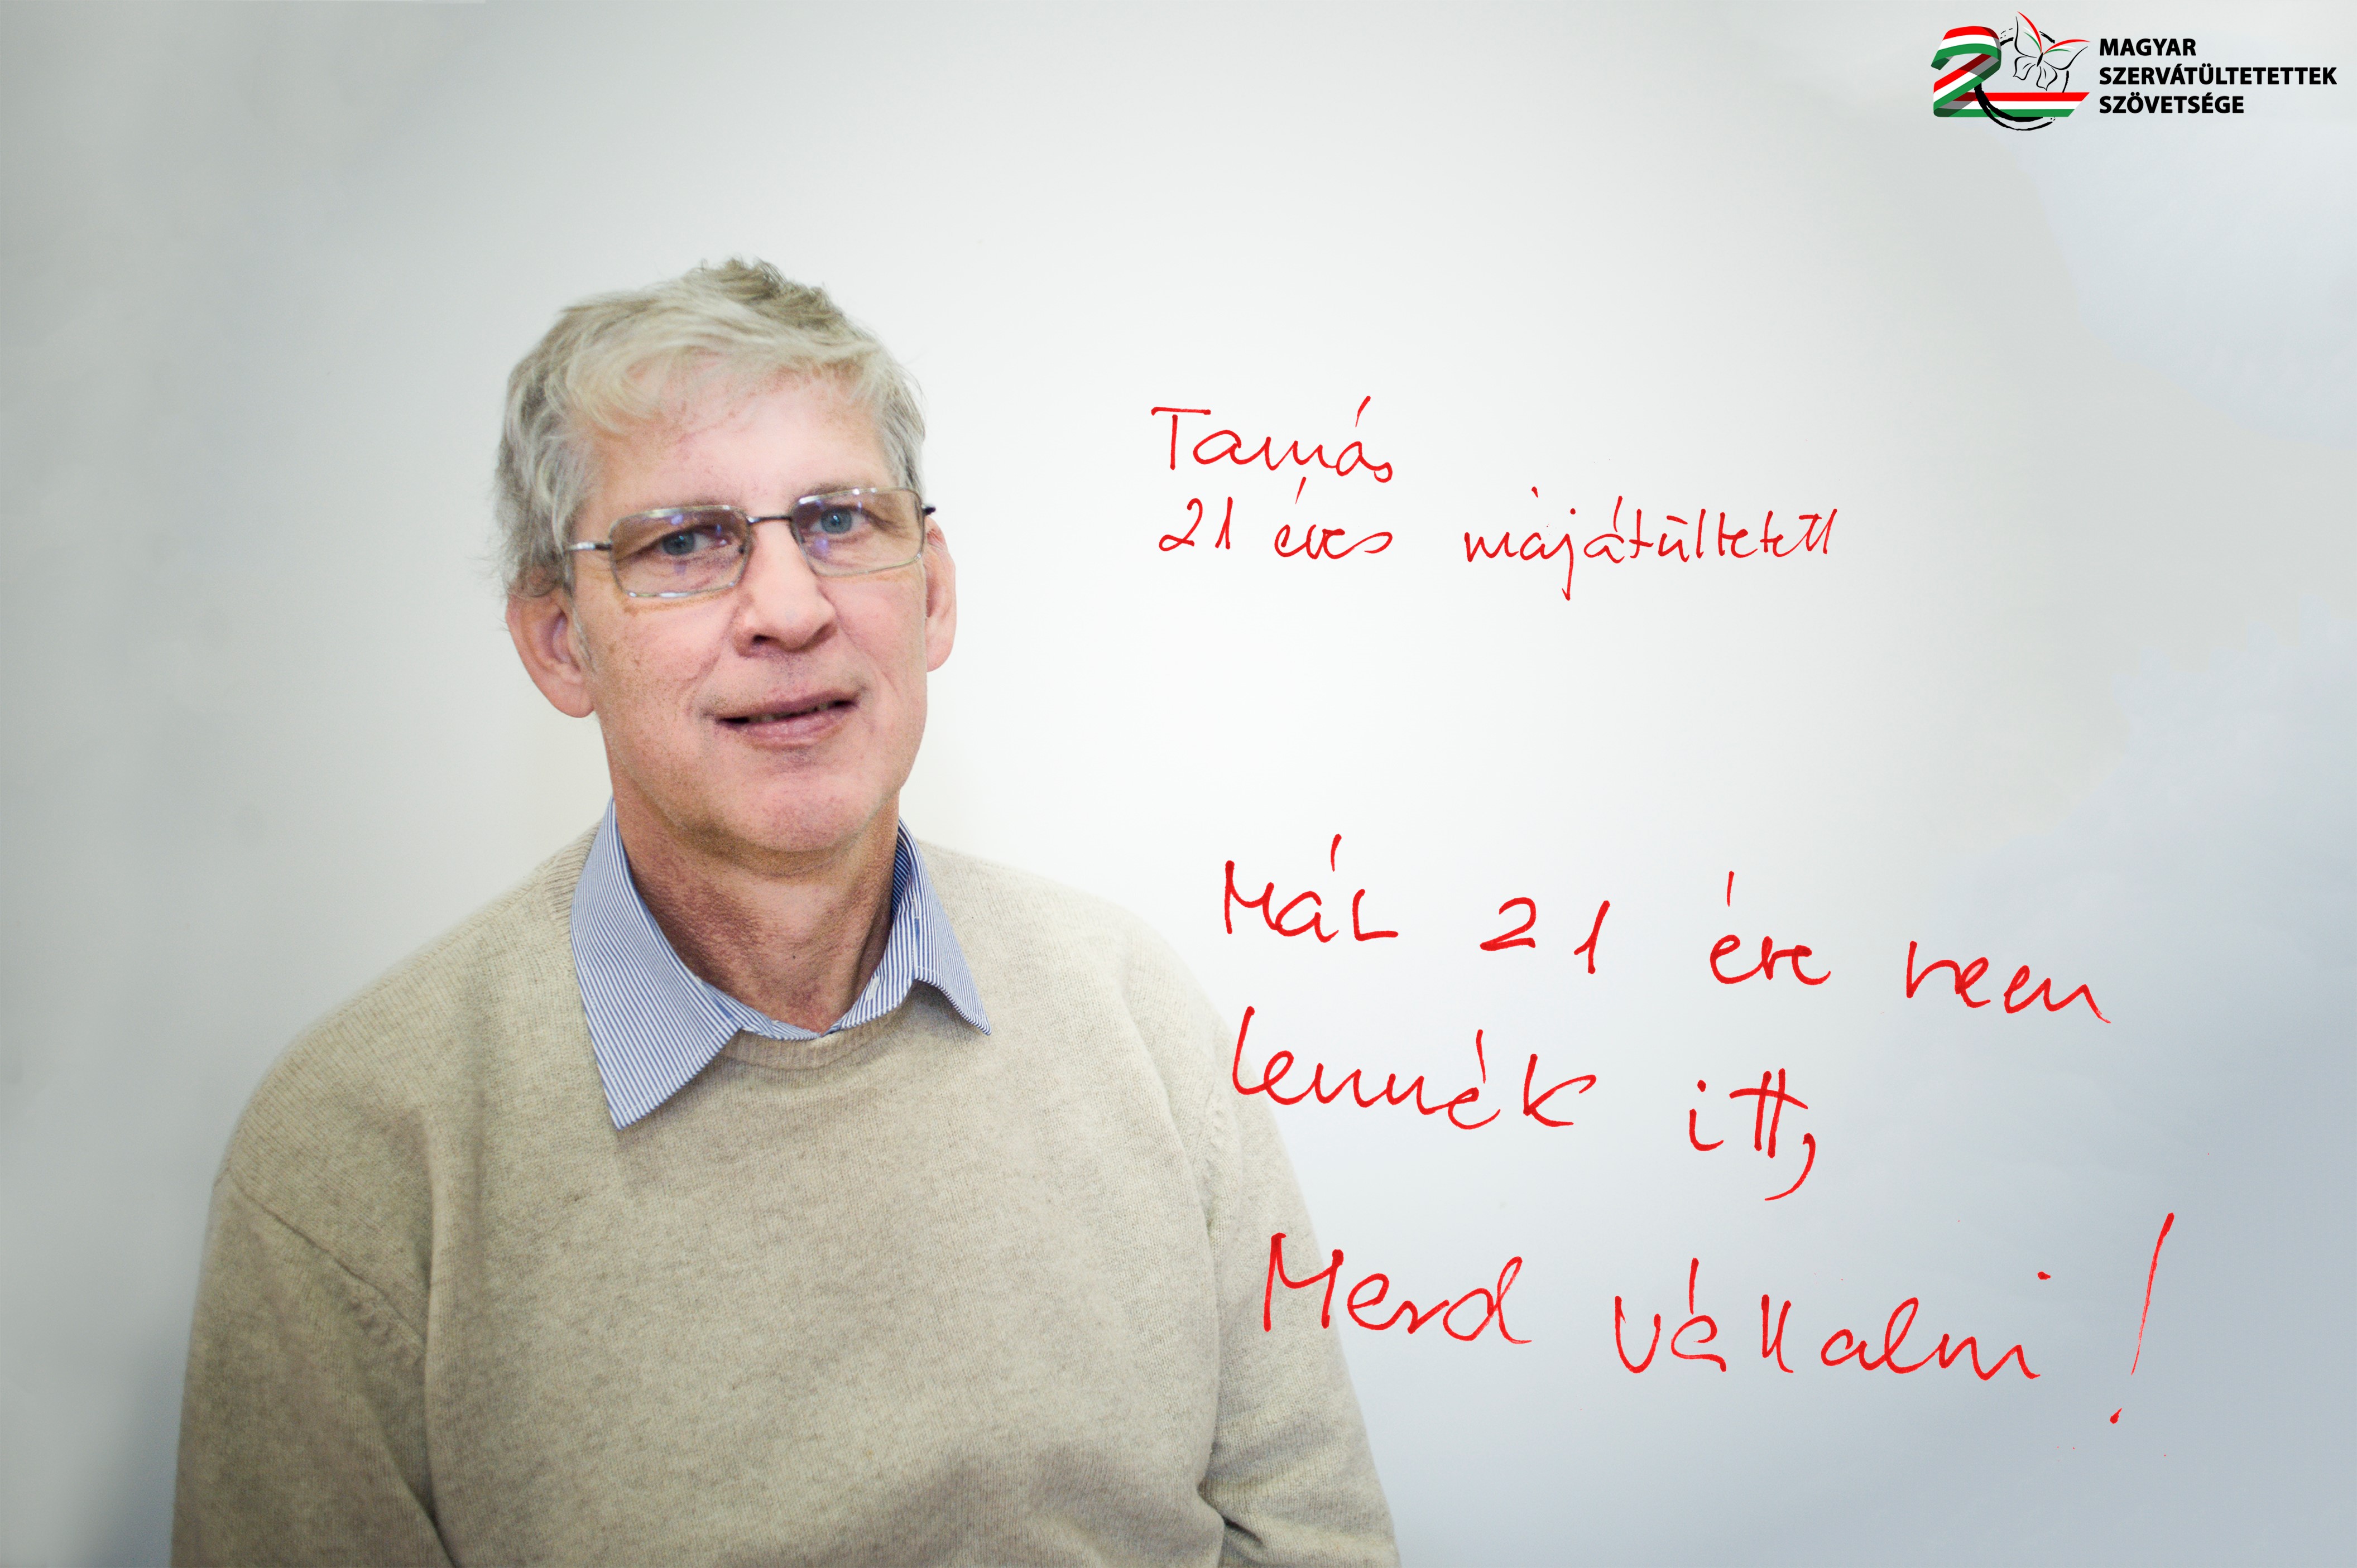 MAGYAR
SZERVÁTÜLTETETTEK
SZÖVETSÉGE
Tamás
21 éves májátültetett
Már 21 éve nem
lennék itt,
Merd vállalni!